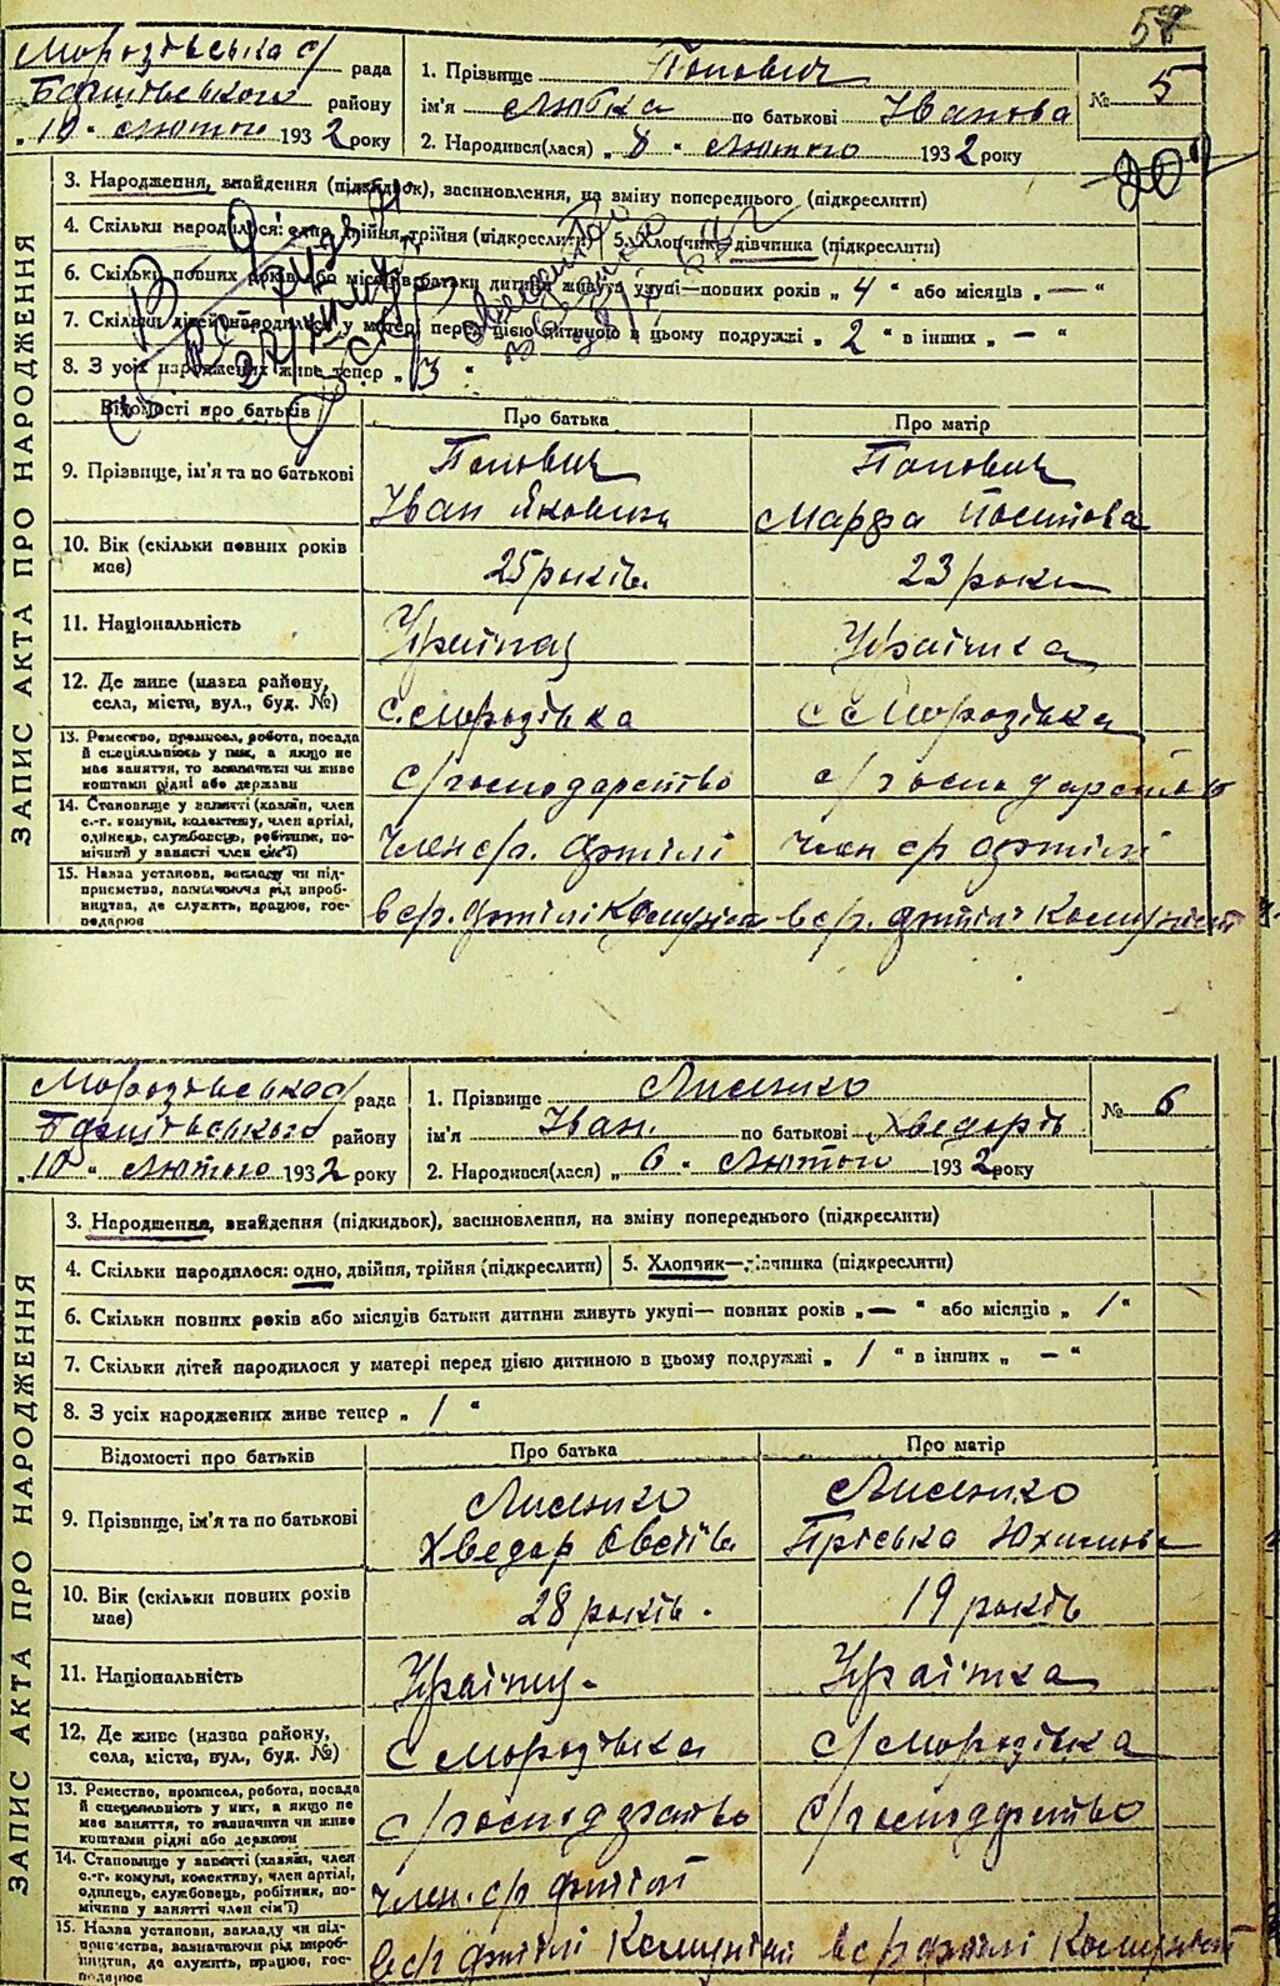 57
Морозівська с/ рада
Баришівського району
„ 10 “ лютого 1932 року
1. Прізвище Попович
ім'я Любка по батькові Іванова
2. Народився(лася) „ 8 “ лютого 1932 року
№ 5
ЗАПИС АКТА ПРО НАРОДЖЕННЯ
3. Народження, знайдення (підкидьок), засиновлення, на зміну попереднього (підкреслити)
4. Скільки народилося: одно, двійня, трійня (підкреслити) 5. Хлопчик—дівчинка (підкреслити)
6. Скільки повних років або місяців батьки дитини живуть укупі—повних років „ 4 “ або місяців „ — “
7. Скільки дітей народилося у матері перед цією дитиною в цьому подружжі „ 2 “ в інших „ — “
8. З усіх народжених живе тепер „ 3 “
Відомості про батьків
Про батька
Про матір
9. Прізвище, ім'я та по батькові
Попович
Іван Якович
Попович
Марфа Йосипова
10. Вік (скільки повних років
має)
25 років
23 роки
11. Національність
Українец
Українка
12. Де живе (назва району,
села, міста, вул., буд. №)
с. Морозівка
с Морозівка
13. Ремество, промисел, робота, посада
й спеціяльність у них, а якщо не
має заняття, то зазначити чи живе
коштами рідні або держави
с/господарство
с/господарство
14. Становище у занятті (хазяїн, член
с.-г. комуни, колективу, член артілі,
одинець, службовець, робітник, по-
мічний у занятті член сім'ї)
член с/г. артілі
член с/г артілі
15. Назва установи, закладу чи під-
приємства, зазначаючи рід вироб-
ництва, де служить, працює, гос-
подарює
в с/г. артілі Комуніст
в с/г. артілі Комуніст
Морозівська с/ рада
Баришівського району
„ 10 “ лютого 1932 року
1. Прізвище Лисенко
ім'я Іван. по батькові Хведорів
2. Народився(лася) „ 6 “ Лютого 1932 року
№ 6
ЗАПИС АКТА ПРО НАРОДЖЕННЯ
3. Народження, знайдення (підкидьок), засиновлення, на зміну попереднього (підкреслити)
4. Скільки народилося: одно, двійня, трійня (підкреслити) 5. Хлопчик—дівчинка (підкреслити)
6. Скільки повних років або місяців батьки дитини живуть укупі— повних років „ — “ або місяців „ 1 “
7. Скільки дітей народилося у матері перед цією дитиною в цьому подружжі „ 1 “ в інших „ — “
8. З усіх народжених живе тепер „ 1 “
Відомості про батьків
Про батька
Про матір
9. Прізвище, ім'я та по батькові
Лисенко
Хведар Овсіїв
Лисенко
Пріська Юхимова
10. Вік (скільки повних років
має)
28 років.
19 років
11. Національність
Українц.
Українка
12. Де живе (назва району,
села, міста, вул., буд. №)
с Морозівка
с/Морозівка
13. Ремество, промисел, робота, посада
й спеціяльність у них, а якщо не
має заняття, то зазначити чи живе
коштами рідні або держави
с/господарство
с/господарство
14. Становище у занятті (хазяїн, член
с.-г. комуни, колективу, член артілі,
одинець, службовець, робітник, по-
мічний у занятті член сім'ї)
член. с/г артілі
15. Назва установи, закладу чи під-
приємства, зазначаючи рід вироб-
ництва, де служить, працює, гос-
подарює
в с/г артілі Комуніст
в с/г артілі Комуніст